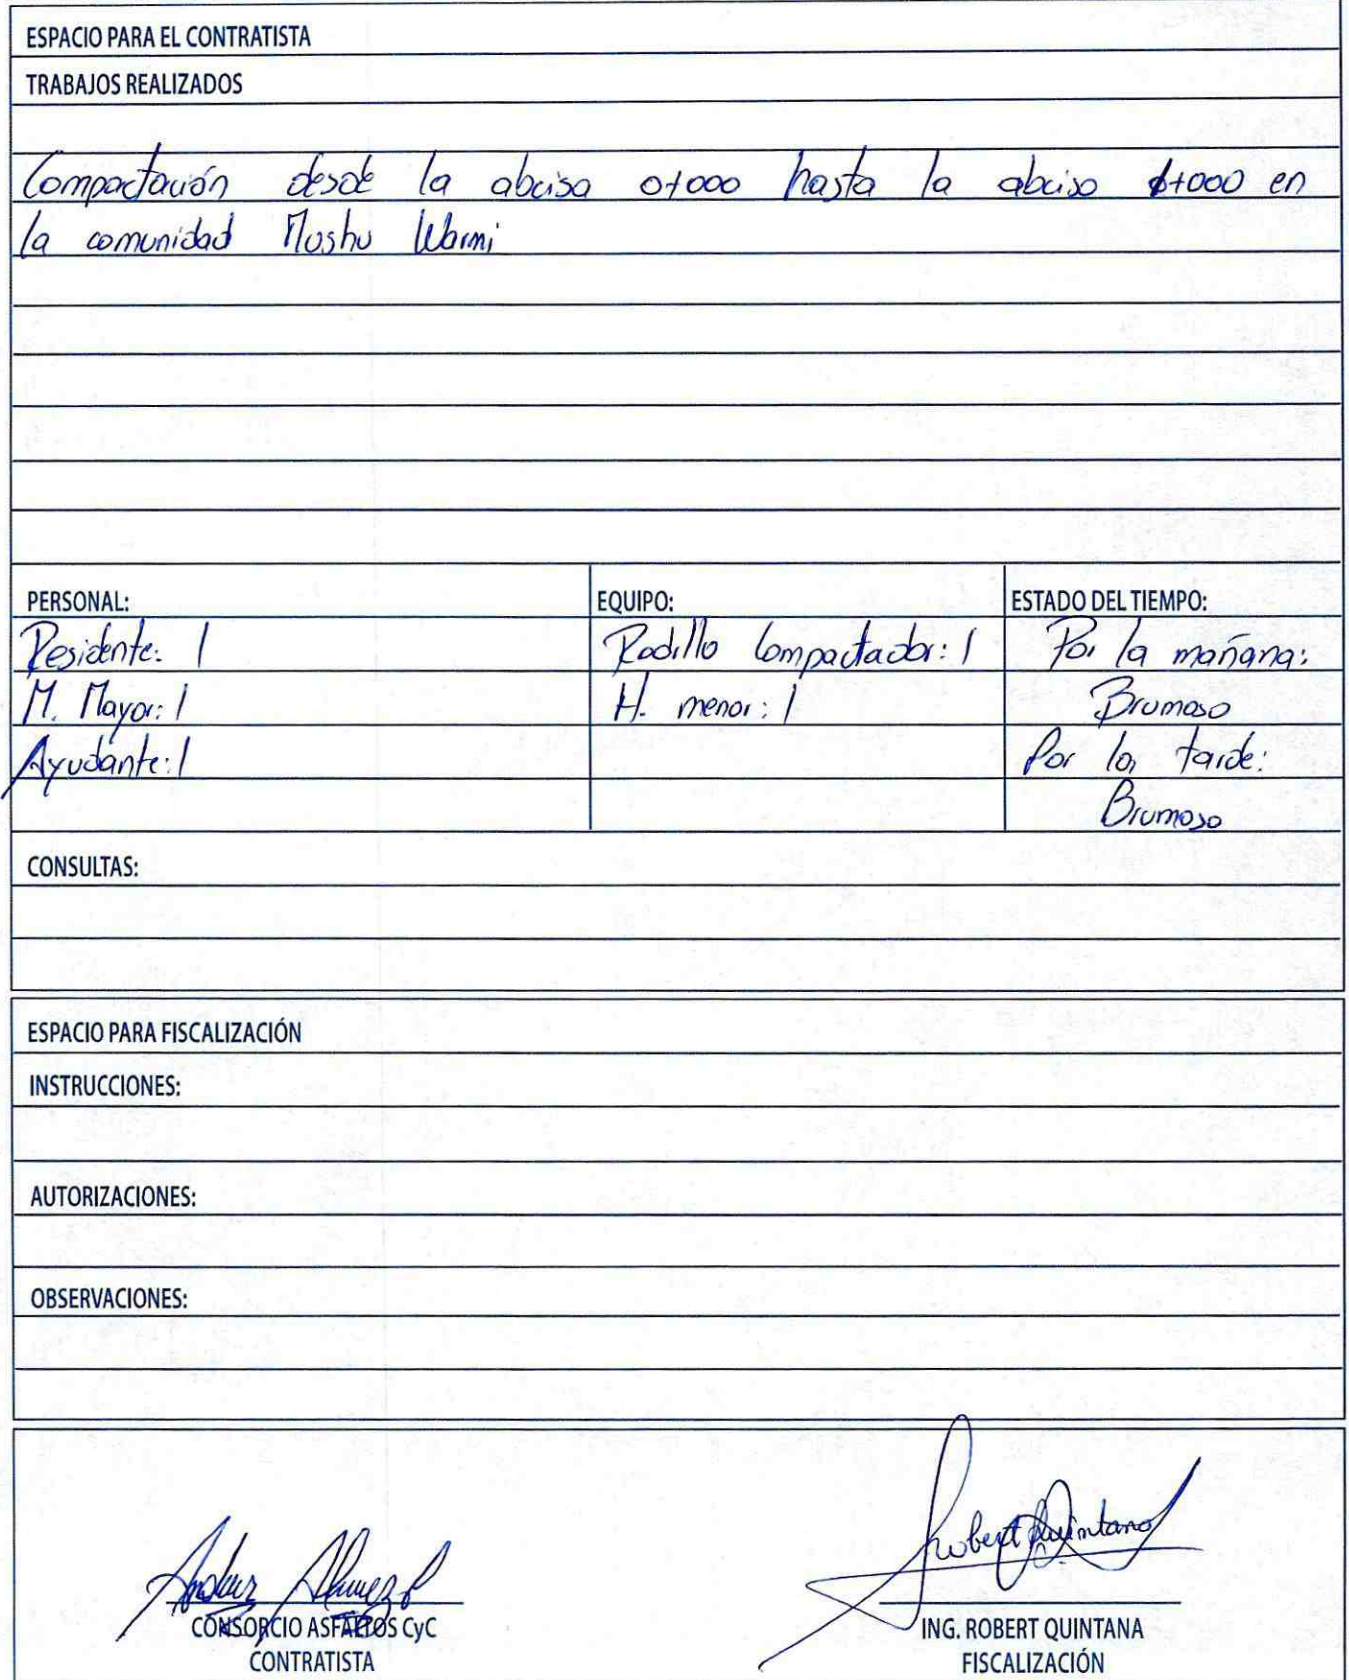 ESPACIO PARA EL CONTRATISTA
TRABAJOS REALIZADOS
Compactación desde la abcisa 0+000 hasta la abcisa +000 en
la comunidad Mushu Warmi
PERSONAL:
Residente: 1
M. Mayor: 1
Ayudante: 1
EQUIPO:
Rodillo Compactador: 1
H. menor: 1
ESTADO DEL TIEMPO:
Por la mañana:
Brumoso
Por la tarde:
Brumoso
CONSULTAS:
ESPACIO PARA FISCALIZACIÓN
INSTRUCCIONES:
AUTORIZACIONES:
OBSERVACIONES:
CONSORCIO ASFALTOS CyC
CONTRATISTA
Robert Quintana
ING. ROBERT QUINTANA
FISCALIZACIÓN